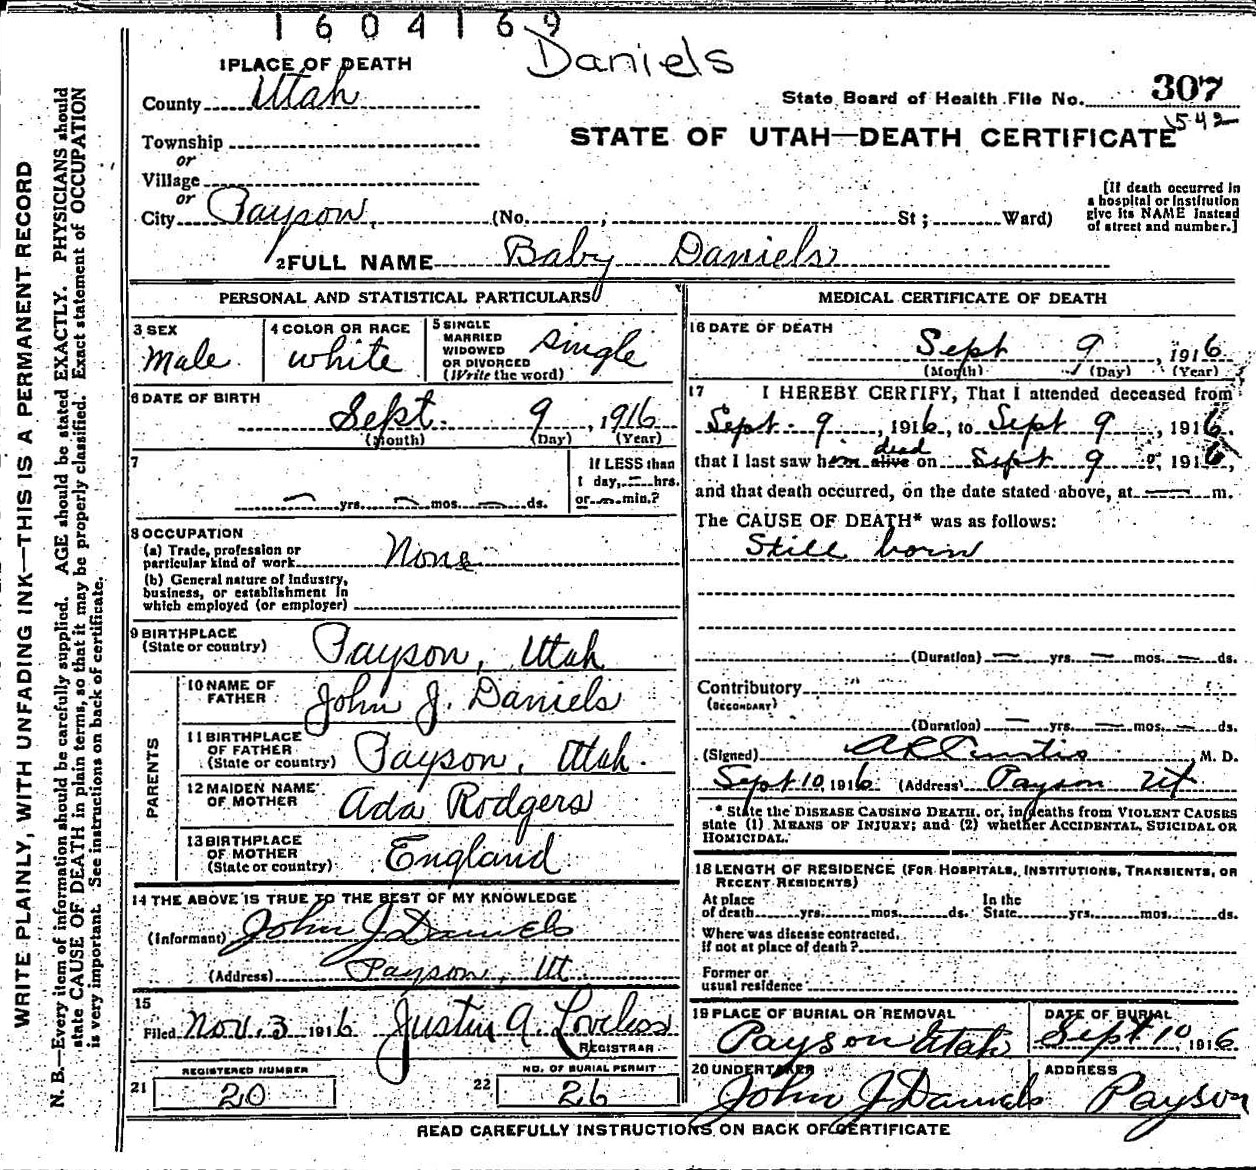 1604169
Daniels
1 PLACE OF DEATH
County Utah
State Board of Health File No. 307
1542
Township
or
Village
or
City Payson, (No. ; St ; Ward)
STATE OF UTAH—DEATH CERTIFICATE
[If death occurred in
a hospital or institution
give its NAME instead
of street and number.]
2 FULL NAME Baby Daniels
PERSONAL AND STATISTICAL PARTICULARS
3 SEX
Male
4 COLOR OR RACE
White
5 SINGLE
MARRIED
WIDOWED
OR DIVORCED
(Write the word)
Single
6 DATE OF BIRTH
Sept. 9, 1916
(Month) (Day) (Year)
7
— yrs. — mos. — ds.
If LESS than
1 day, — hrs.
or — min.?
8 OCCUPATION
(a) Trade, profession or
particular kind of work None
(b) General nature of Industry,
business, or establishment in
which employed (or employer)
9 BIRTHPLACE
(State or country) Payson, Utah
PARENTS
10 NAME OF
FATHER John J. Daniels
11 BIRTHPLACE
OF FATHER
(State or country) Payson, Utah.
12 MAIDEN NAME
OF MOTHER Ada Rodgers
13 BIRTHPLACE
OF MOTHER
(State or country) England
14 THE ABOVE IS TRUE TO THE BEST OF MY KNOWLEDGE
(Informant) John J Daniels
(Address) Payson, Ut.
15
Filed Nov. 3 1916 Justin A. Loveless
REGISTRAR
REGISTERED NUMBER
21 20
NO. OF BURIAL PERMIT
22 26
MEDICAL CERTIFICATE OF DEATH
16 DATE OF DEATH
Sept 9, 1916
(Month) (Day) (Year)
17 I HEREBY CERTIFY, That I attended deceased from
Sept. 9, 1916, to Sept 9, 1916.
dead
that I last saw him alive on Sept 9, 1916,
and that death occurred, on the date stated above, at — m.
The CAUSE OF DEATH* was as follows:
Still born
(Duration) — yrs. — mos. — ds.
Contributory
(SECONDARY)
(Duration) — yrs. — mos. — ds.
(Signed) A R Curtis M. D.
Sept 10, 1916 (Address) Payson Ut
* State the DISEASE CAUSING DEATH, or, in deaths from VIOLENT CAUSES
state (1) MEANS OF INJURY; and (2) whether ACCIDENTAL, SUICIDAL OR
HOMICIDAL.
18 LENGTH OF RESIDENCE (FOR HOSPITALS, INSTITUTIONS, TRANSIENTS, OR
RECENT RESIDENTS)
At place
of death yrs. mos. ds.
In the
State yrs. mos. ds.
Where was disease contracted,
if not at place of death?
Former or
usual residence
19 PLACE OF BURIAL OR REMOVAL
Payson Utah
DATE OF BURIAL
Sept. 10, 1916
20 UNDERTAKER
John J Daniels
ADDRESS
Payson
READ CAREFULLY INSTRUCTIONS ON BACK OF CERTIFICATE
WRITE PLAINLY, WITH UNFADING INK—THIS IS A PERMANENT RECORD
N. B.—Every item of information should be carefully supplied. AGE should be stated EXACTLY. PHYSICIANS should
state CAUSE OF DEATH in plain terms, so that it may be properly classified. Exact statement of OCCUPATION
is very important. See instructions on back of certificate.